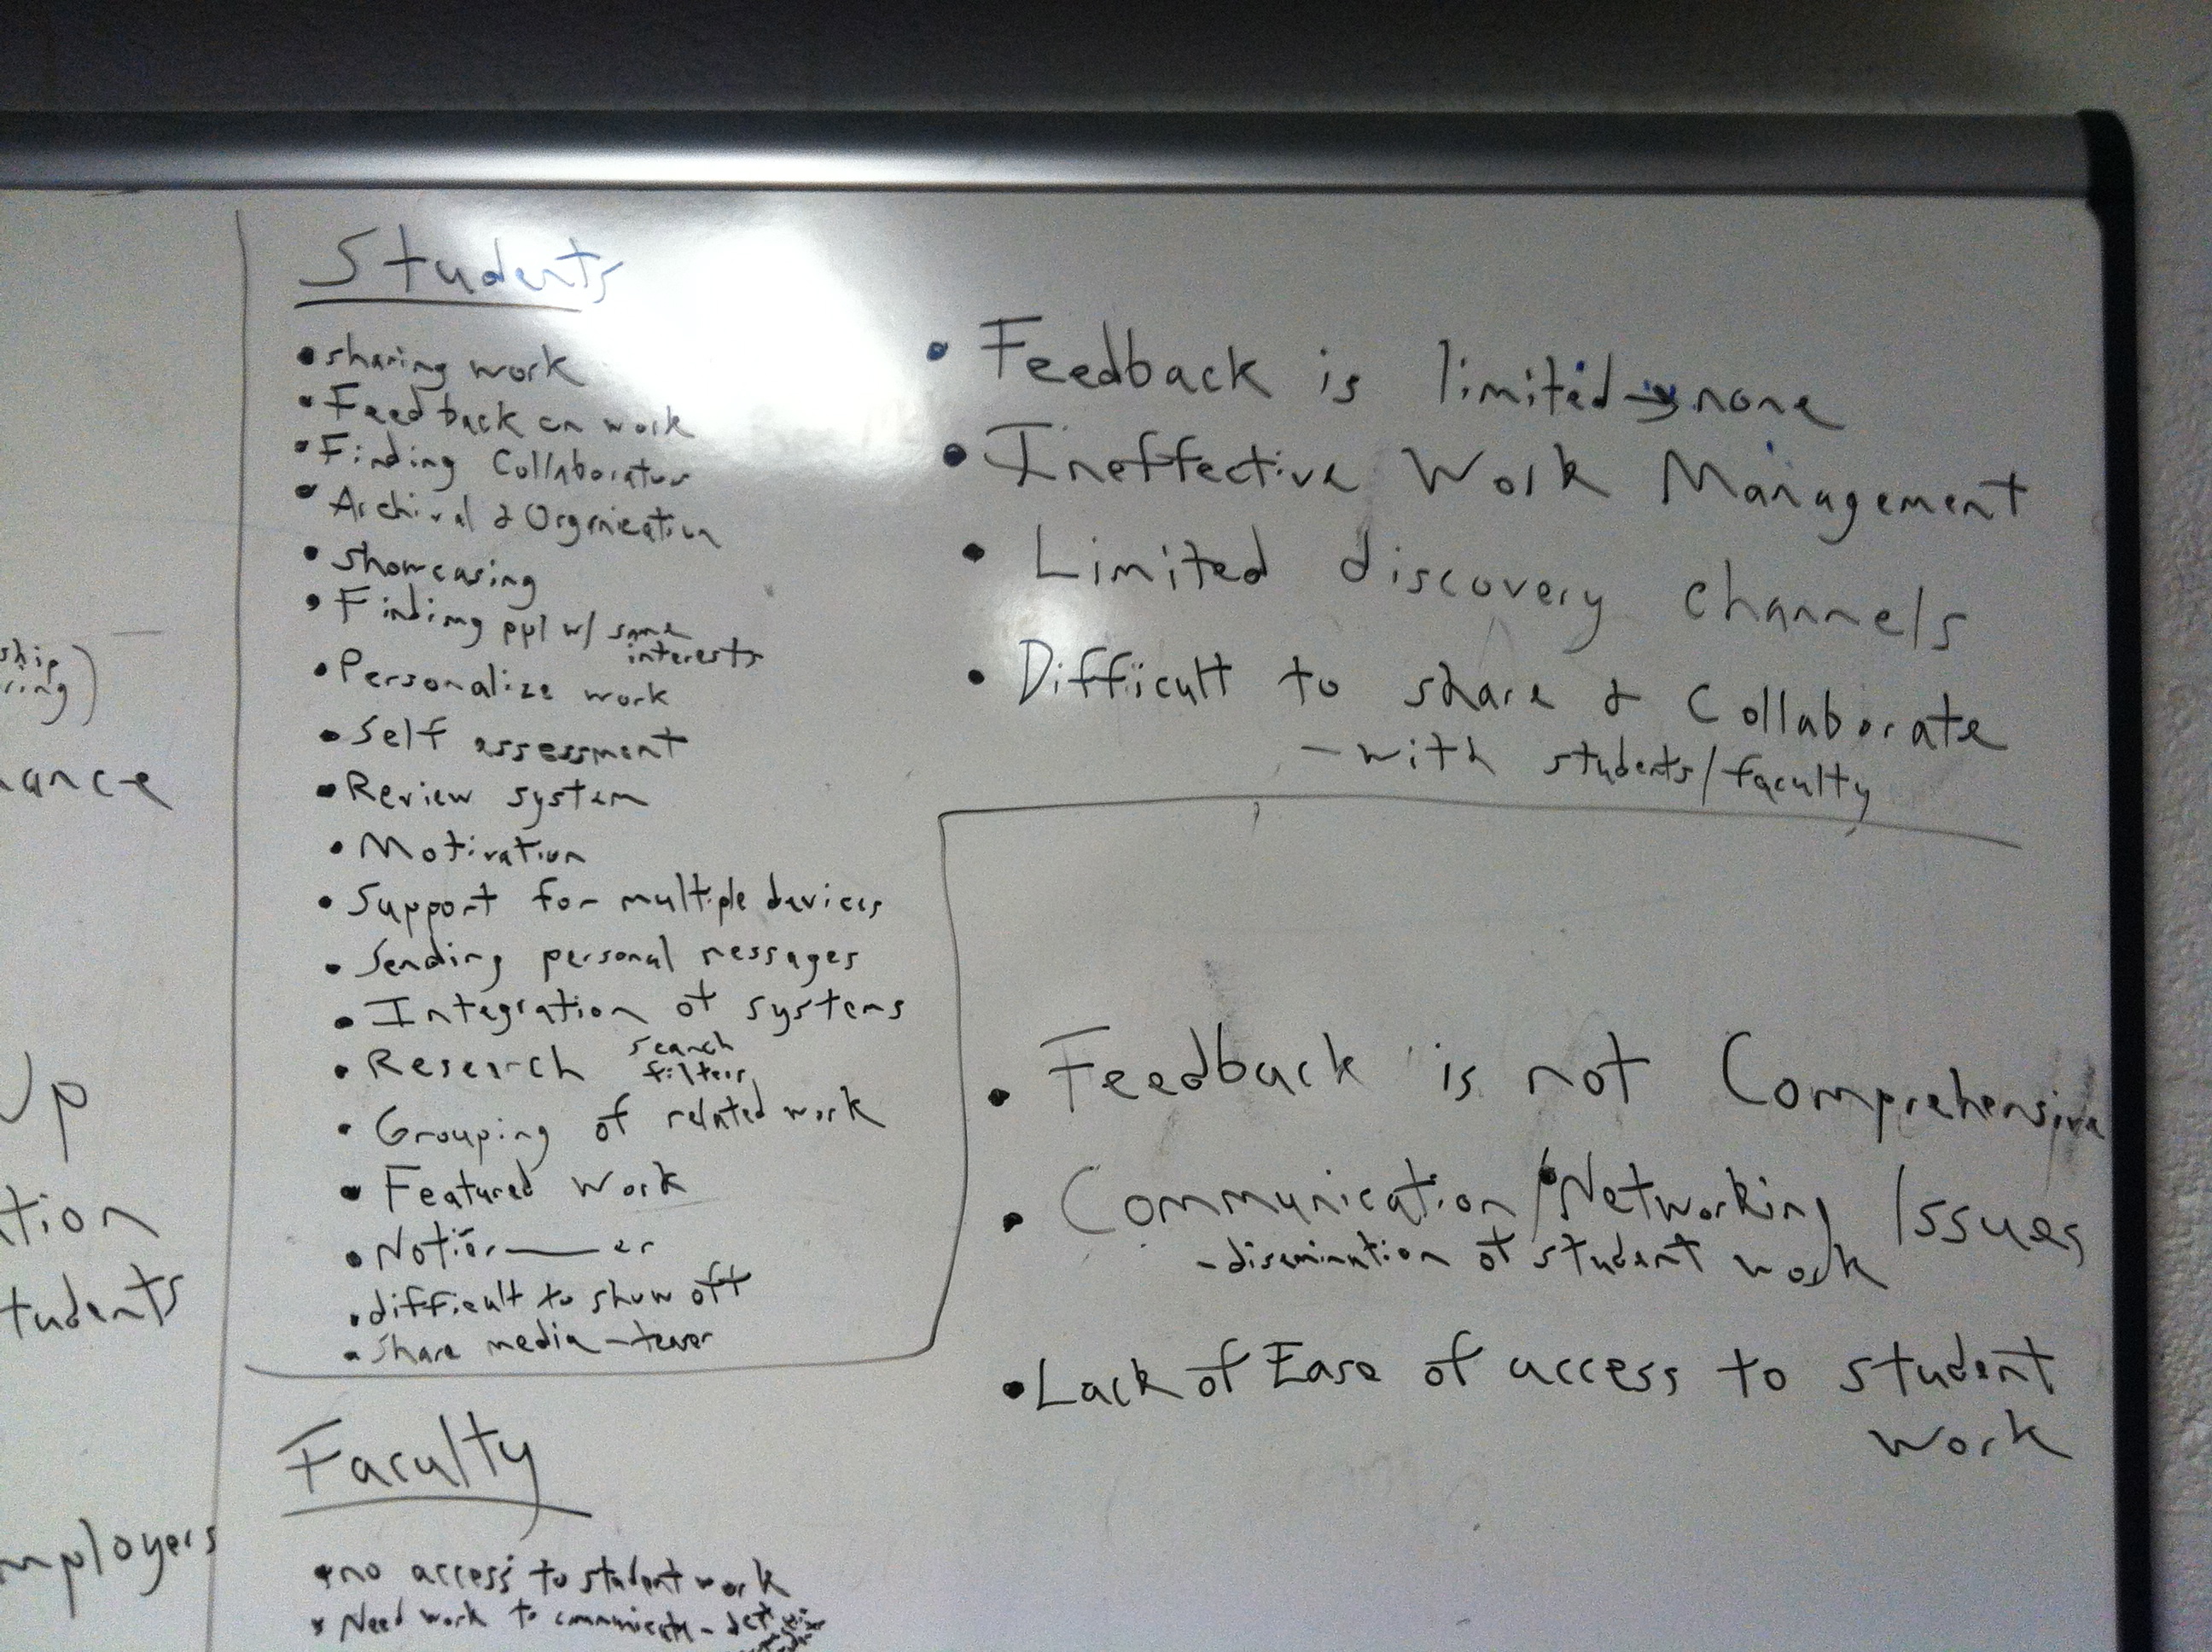 Students
• sharing work
• Feedback on work
• Finding Collaborators
• Archival & Organization
• showcasing
• Finding ppl w/ same
interests
• Personalize work
• Self assessment
• Review system
• Motivation
• Support for multiple devices
• Sending personal messages
• Integration of systems
• Research search
filters
• Grouping of related work
• Featured work
• difficult to show off
• Share media
Faculty
• no access to student work
• Need work to communicate -
• Feedback is limited → none
• Ineffective Work Management
• Limited discovery channels
• Difficult to share & Collaborate
- with students/faculty
• Feedback is not Comprehensive
• Communication/Networking Issues
- disemination of student work
• Lack of Ease of access to student
work
ship
ring)
ance
Up
tion
tudents
mployers